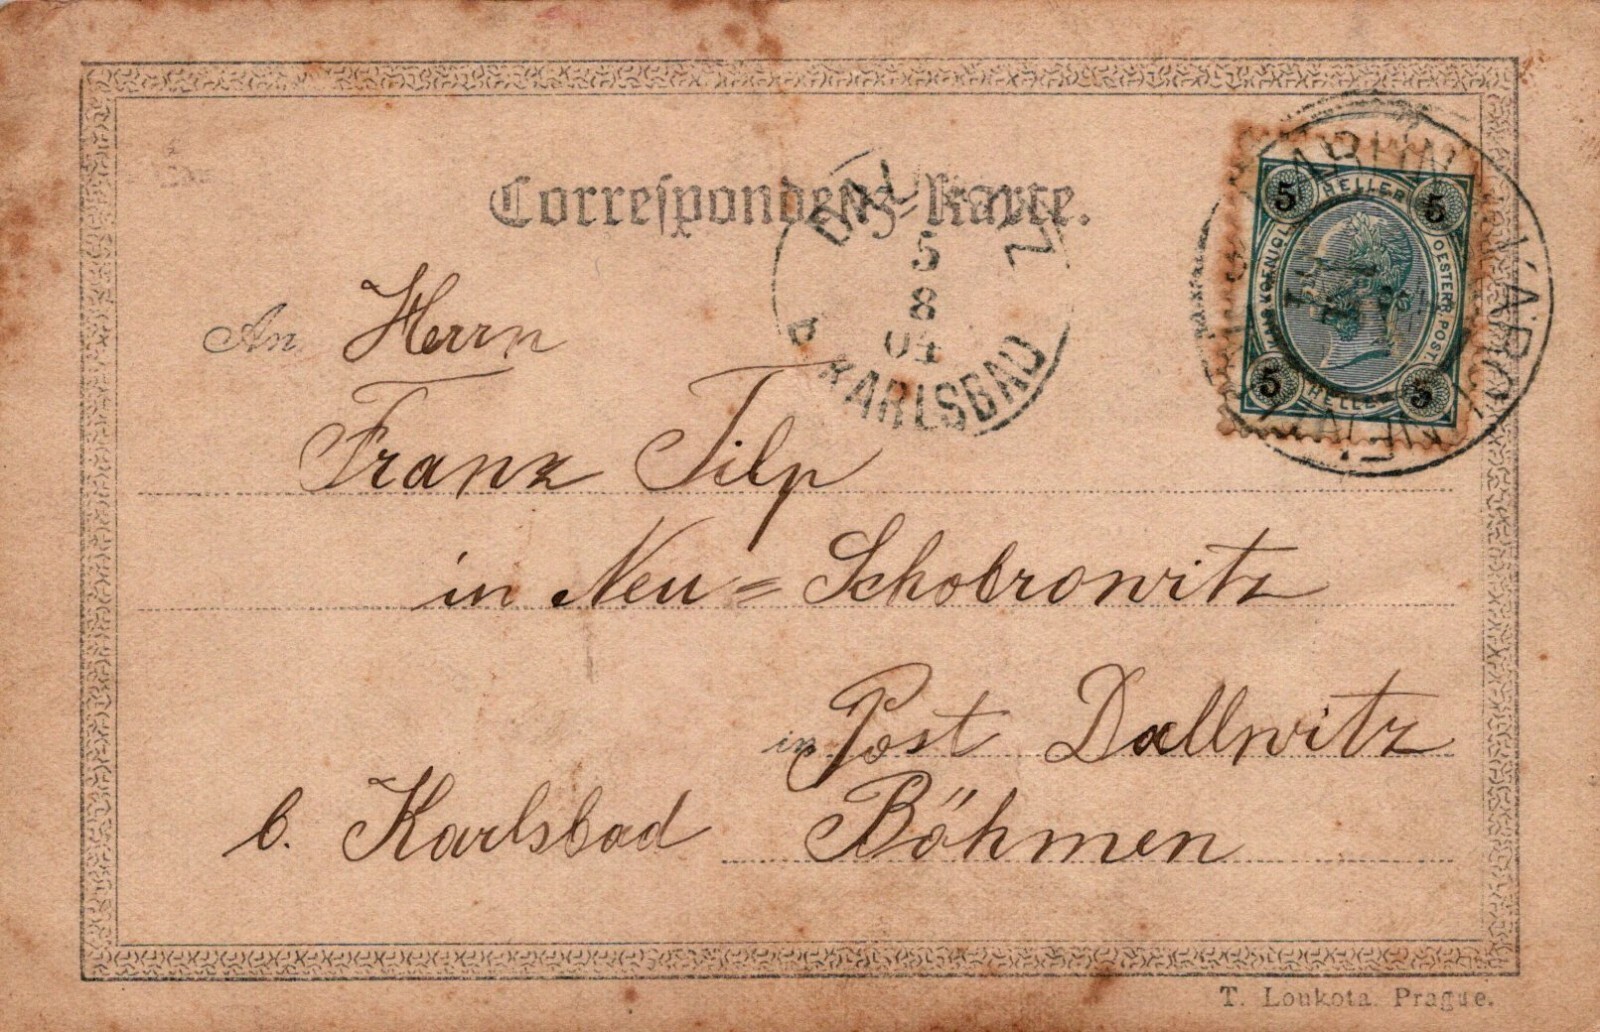 Correspondenz-Karte.
5
8
04
KARLSBAD
5 HELLER 5
OESTERR. POST.
5 HELLER 5
An Herrn
Franz Tilp
in Neu=Schobrowitz
in Post Dallwitz
b. Karlsbad Böhmen
T. Loukota Prague.